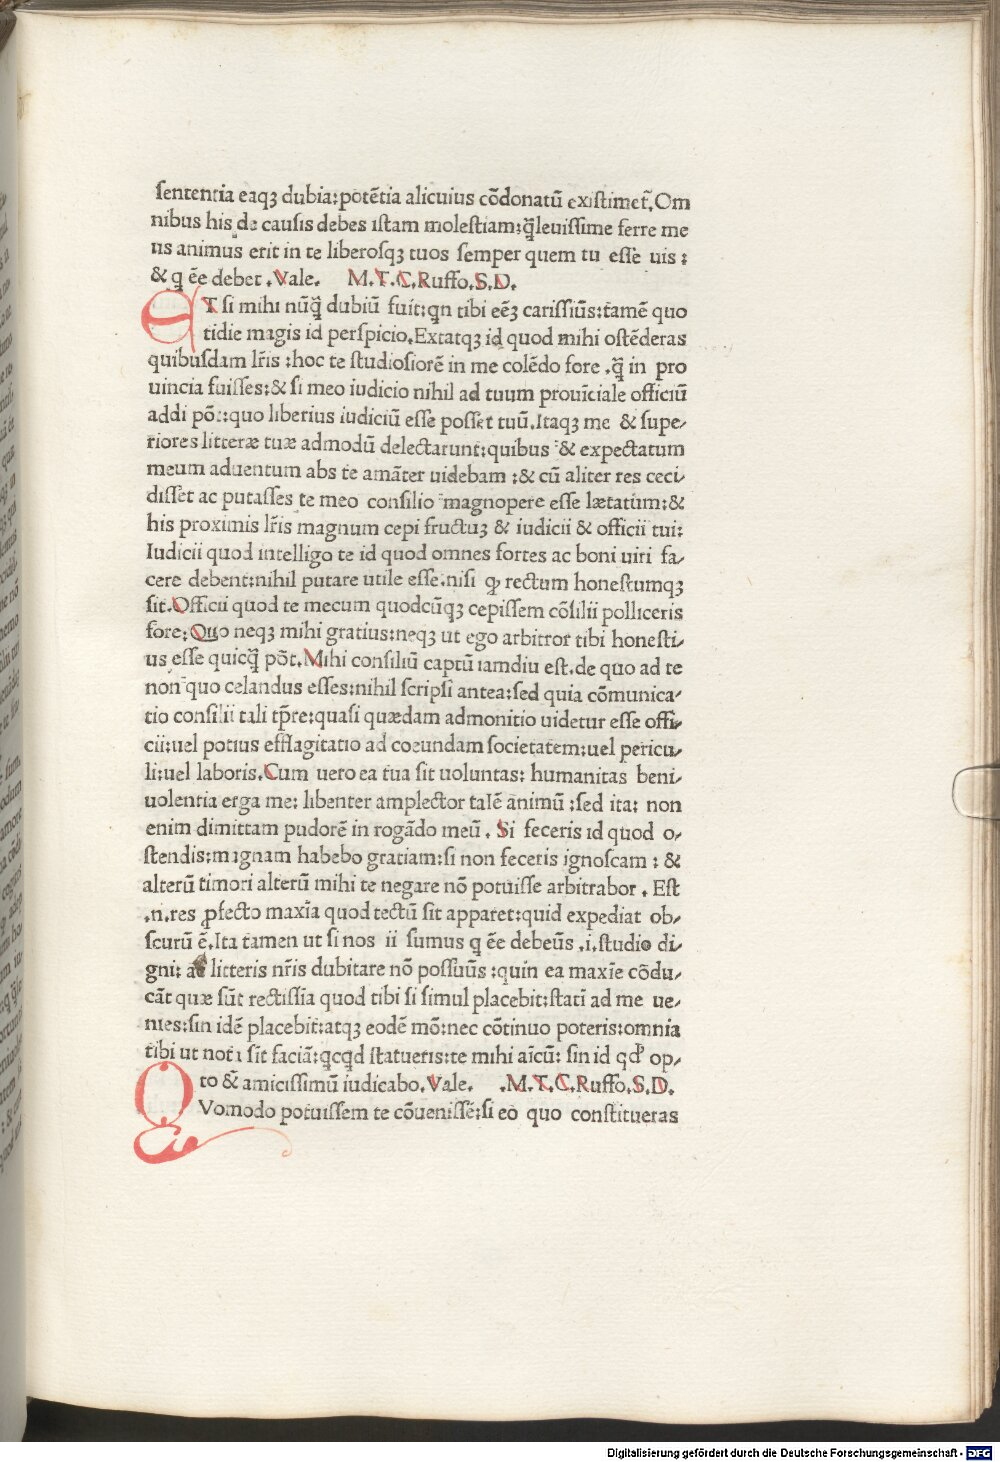 sententia eaqꝫ dubia: potētia alicuius cōdonatū existimet̃. Om
nibus his de causis debes istam molestiam: q̄̃leuissime ferre me
us animus erit in te liberosqꝫ tuos semper quem tu esse uis :
& q̨ ēe debet . Vale. M. T. C. Ruffo. S. D.
ET si mihi nūq̄̃ dubiū fuit: qn tibi eēꝫ carissiūs: tamē quo
tidie magis id perspicio. Extatqꝫ id quod mihi ostēderas
quibusdam lr̄is : hoc te studiosiorē in me colēdo fore . q̄̃ in pro
uincia fuisses: & si meo iudicio nihil ad tuum prouīciale officiū
addi pōt: quo liberius iudiciū esse posset tuū. Itaqꝫ me & supe-
riores litteræ tuæ admodū delectarunt: quibus & expectatum
meum aduentum abs te amāter uidebam : & cū aliter res ceci-
disset ac putasses te meo consilio magnopere esse lætatum: &
his proximis lr̄is magnum cepi fructuꝫ & iudicii & officii tui:
Iudicii quod intelligo te id quod omnes fortes ac boni uiri fa-
cere debent: nihil putare utile esse. nisi ꝙ rectum honestumqꝫ
sit. Officii quod te mecum quodcūqꝫ cepissem cōsilii polliceris
fore: Quo neqꝫ mihi gratius: neqꝫ ut ego arbitror tibi honesti-
us esse quicq̄̃ pōt. Mihi consiliū captū iamdiu est. de quo ad te
non quo celandus esses: nihil scripsi antea: sed quia cōmunica-
tio consilii tali tp̄re: quasi quædam admonitio uidetur esse offi-
cii: uel potius efflagitatio ad coeundam societatem: uel pericu-
li: uel laboris. Cum uero ea tua sit uoluntas: humanitas beni-
uolentia erga me: libenter amplector talē animū : sed ita: non
enim dimittam pudorē in rogādo meū . Si feceris id quod o-
stendis: magnam habebo gratiam: si non feceris ignoscam : &
alterū timori alterū mihi te negare nō potuisse arbitrabor . Est
.n. res ꝓfecto maxīa quod tectū sit apparet: quid expediat ob-
scurū ē. Ita tamen ut si nos ii sumus q̨ ēe debeūs . i. studio di-
gni: ac litteris nr̄is dubitare nō possuūs : quin ea maxīe cōdu-
cāt quæ sūt rectissīa quod tibi si simul placebit: statī ad me ue-
nies: sin idē placebit: atqꝫ eodē mō: nec cōtinuo poteris: omnia
tibi ut nota sīt faciā: q̨cqd statueris: te mihi aīcū: sin id qd̕ op-
to & amicissimū iudicabo. Vale. .M. T. C. Ruffo. S. D.
QVomodo potuissem te cōuenissē: si eo quo constitueras
Digitalisierung gefördert durch die Deutsche Forschungsgemeinschaft - DFG